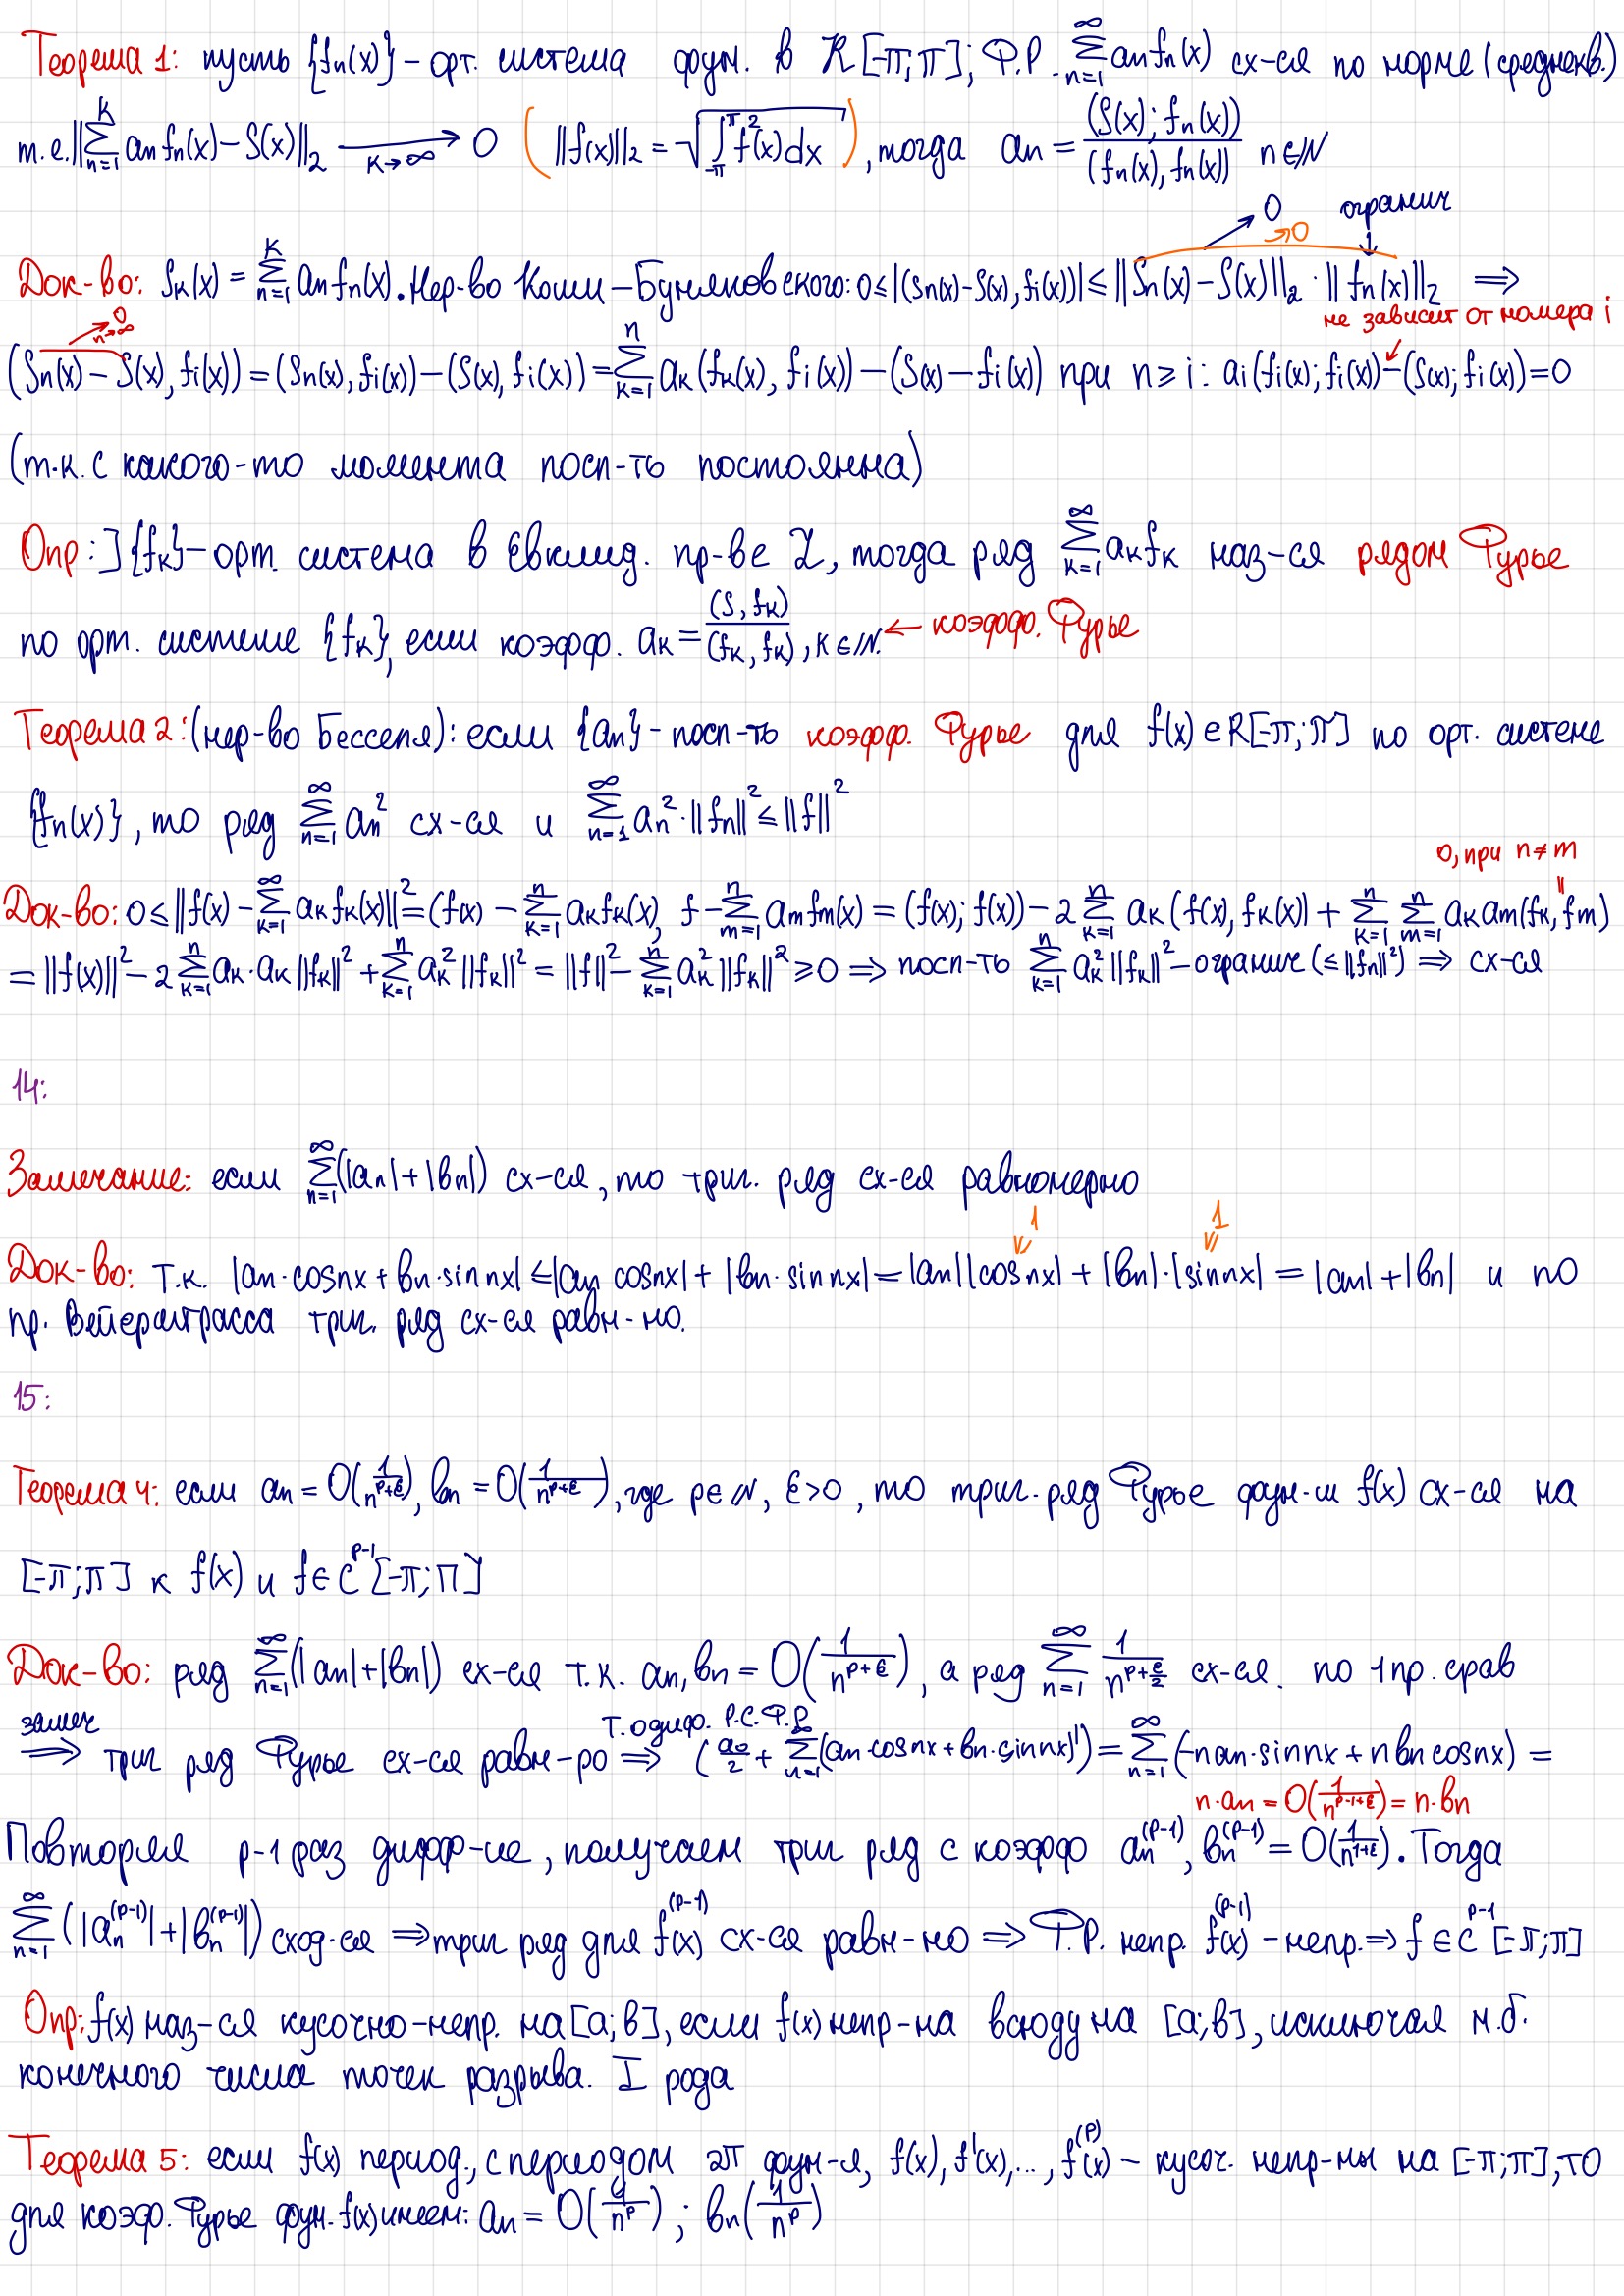 Теорема 1: пусть {fn(x)} – орт. система функ. в R[-π;π]; Ф.Р. ∑_{n=1}^{∞} an fn(x) сх-ся по норме (среднекв.)
т.е. ||∑_{n=1}^{K} an fn(x) – S(x)||₂ →_{K→∞} 0 ( ||f(x)||₂ = √(∫_{-π}^{π} f²(x)dx) ), тогда an = (S(x); fn(x)) / (fn(x), fn(x)) n∈N
→0 →0 огранич ↓
Док-во: Sк(x) = ∑_{n=1}^{K} an fn(x). Нер-во Коши – Буняковского: 0 ≤ |(Sn(x)-S(x), fi(x))| ≤ ||Sn(x) – S(x)||₂ · ||fn(x)||₂ ⟹
→0 n→∞ не зависит от номера i
(Sn(x) – S(x), fi(x)) = (Sn(x), fi(x)) – (S(x), fi(x)) = ∑_{k=1}^{n} aк (fк(x), fi(x)) – (S(x) – fi(x)) при n ≥ i: ai (fi(x); fi(x)) – (S(x); fi(x)) = 0
(т.к. с какого-то момента посл-ть постоянна)
Опр: ] {fк} – орт. система в Евклид. пр-ве L, тогда ряд ∑_{k=1}^{∞} aк fк наз-ся рядом Фурье
по орт. системе {fк}, если коэфф. aк = (S, fк) / (fк, fк), K∈N. ← коэфф. Фурье
Теорема 2: (нер-во Бесселя): если {an} – посл-ть коэфф. Фурье для f(x) ∈ R[-π;π] по орт. системе
{fn(x)}, то ряд ∑_{n=1}^{∞} an² сх-ся и ∑_{n=1}^{∞} an² · ||fn||² ≤ ||f||²
0, при n ≠ m
Док-во: 0 ≤ ||f(x) – ∑_{k=1}^{∞} aк fк(x)||² = (f(x) – ∑_{k=1}^{n} aк fк(x), f – ∑_{m=1}^{n} am fm(x) = (f(x); f(x)) – 2 ∑_{k=1}^{n} aк (f(x), fк(x)) + ∑_{k=1}^{n} ∑_{m=1}^{n} aк am (fк, fm)
= ||f(x)||² – 2 ∑_{k=1}^{n} aк · aк ||fк||² + ∑_{k=1}^{n} aк² ||fк||² = ||f||² – ∑_{k=1}^{n} aк² ||fк||² ≥ 0 ⟹ посл-ть ∑_{k=1}^{n} aк² ||fк||² – огранич (≤ ||fn||²) ⟹ сх-ся
14:
Замечание: если ∑_{n=1}^{∞} (|an| + |bn|) сх-ся, то триг. ряд сх-ся равномерно
1 1
Док-во: т.к. |an · cosnx + bn · sin nx| ≤ |an cosnx| + |bn · sin nx| = |an| |cosnx| + |bn| · |sinnx| = |an| + |bn| и по
пр. Вейерштрасса триг. ряд сх-ся равн-но.
15:
Теорема 4: если an = O(1/n^{p+ε}), bn = O(1/n^{p+ε}), где p∈N, ε>0, то триг. ряд Фурье фун-и f(x) сх-ся на
[-π;π] к f(x) и f ∈ C^{p-1}[-π;π]
Док-во: ряд ∑_{n=1}^{∞} (|an| + |bn|) сх-ся т.к. an, bn = O(1/n^{p+ε}), а ряд ∑_{n=1}^{∞} 1/n^{p+ε/2} сх-ся. по 1 пр. срав
замеч ⟹ триг ряд Фурье сх-ся равн-ро т. о диф. Р.С.Ф.Р ⟹ (a₀/2 + ∑_{n=1}^{∞} (an · cosnx + bn · sinnx)') = ∑_{n=1}^{∞} (-nan · sinnx + nbn cosnx) =
n · an = O(1/n^{p-1+ε}) = n · bn
Повторяя p-1 раз дифф-ие, получаем триг ряд с коэфф an^{(p-1)}, bn^{(p-1)} = O(1/n^{1+ε}). Тогда
∑_{n=1}^{∞} (|an^{(p-1)}| + |bn^{(p-1)}|) сход-ся ⟹ триг ряд для f^{(p-1)}(x) сх-ся равн-но ⟹ Ф.Р. непр. f^{(p-1)}(x) – непр. ⟹ f ∈ C^{p-1}[-π;π]
Опр: f(x) наз-ся кусочно-непр. на [a;b], если f(x) непр-на всюду на [a;b], исключая м.б.
конечного числа точек разрыва. I рода
Теорема 5: если f(x) период., с периодом 2π фун-я, f(x), f'(x), ..., f^{(p)}(x) – кусоч. непр-ны на [-π;π], то
для коэф. Фурье фун. f(x) имеем: an = O(1/n^p); bn(1/n^p)